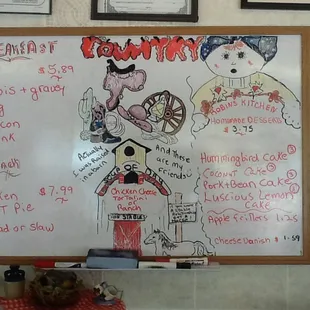 EAKFAST
$5.89
is + gravy
con
COUNTRY
Actually
I was Raised
in a barn
And these
are my
friends!
OF
Chicken Cheese
Tortalini
or
Ranch
$7.99
ken
T Pie
d or Slaw
ROBINS KITCHEN
Homemade DESSERTS
$3.75
Hummingbird Cake
Coconut Cake
Pork + Bean Cake
Luscious Lemon
CAKE
Apple fritters 1.25
Cheese Danish $1.59